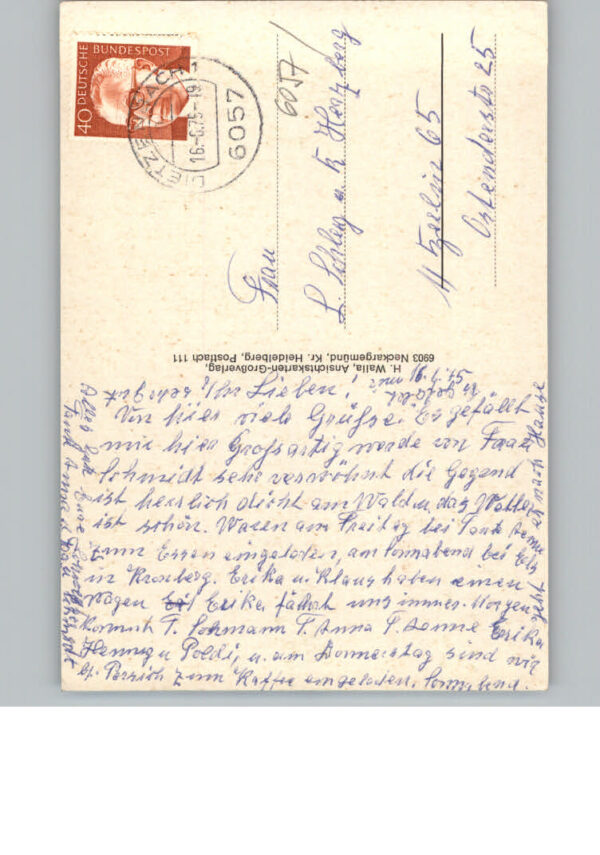 40 DEUTSCHE BUNDESPOST
DIETZENBACH 1
16.-6.75-19
6057
6057
Frau
L.
a. K Herzberg
65
Ostenderstr 25
H. Walla, Ansichtskarten-Großverlag,
6903 Neckargemünd, Kr. Heidelberg, Postfach 111
Ihr Lieben!
Von hier viele Grüße. Es gefällt
mir hier Großartig werde von Frau
Schmidt sehr verwöhnt die Gegend
ist herrlich dicht am Wald u. das Wetter
ist schön. Waren am Freitag bei Tante
zum Essen eingeladen, am Sonnabend bei
in Kronberg. Erika u. Klaus haben einen
Wagen Erika fährt uns immer. Morgen
kommt T. Lohmann T. Anna T. Erika
Henny u Poldi, u. am Donnerstag sind wir
bei zum Kaffee eingeladen. Sonnabend
geht es nach Hause
Alles Gute Eure